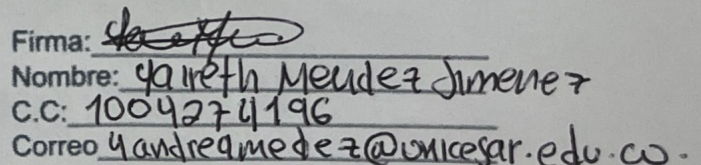 Firma:
Nombre: Yaireth Mendez Jimenez
C.C: 1004274196
Correo yandreamedez@unicesar.edu.co.